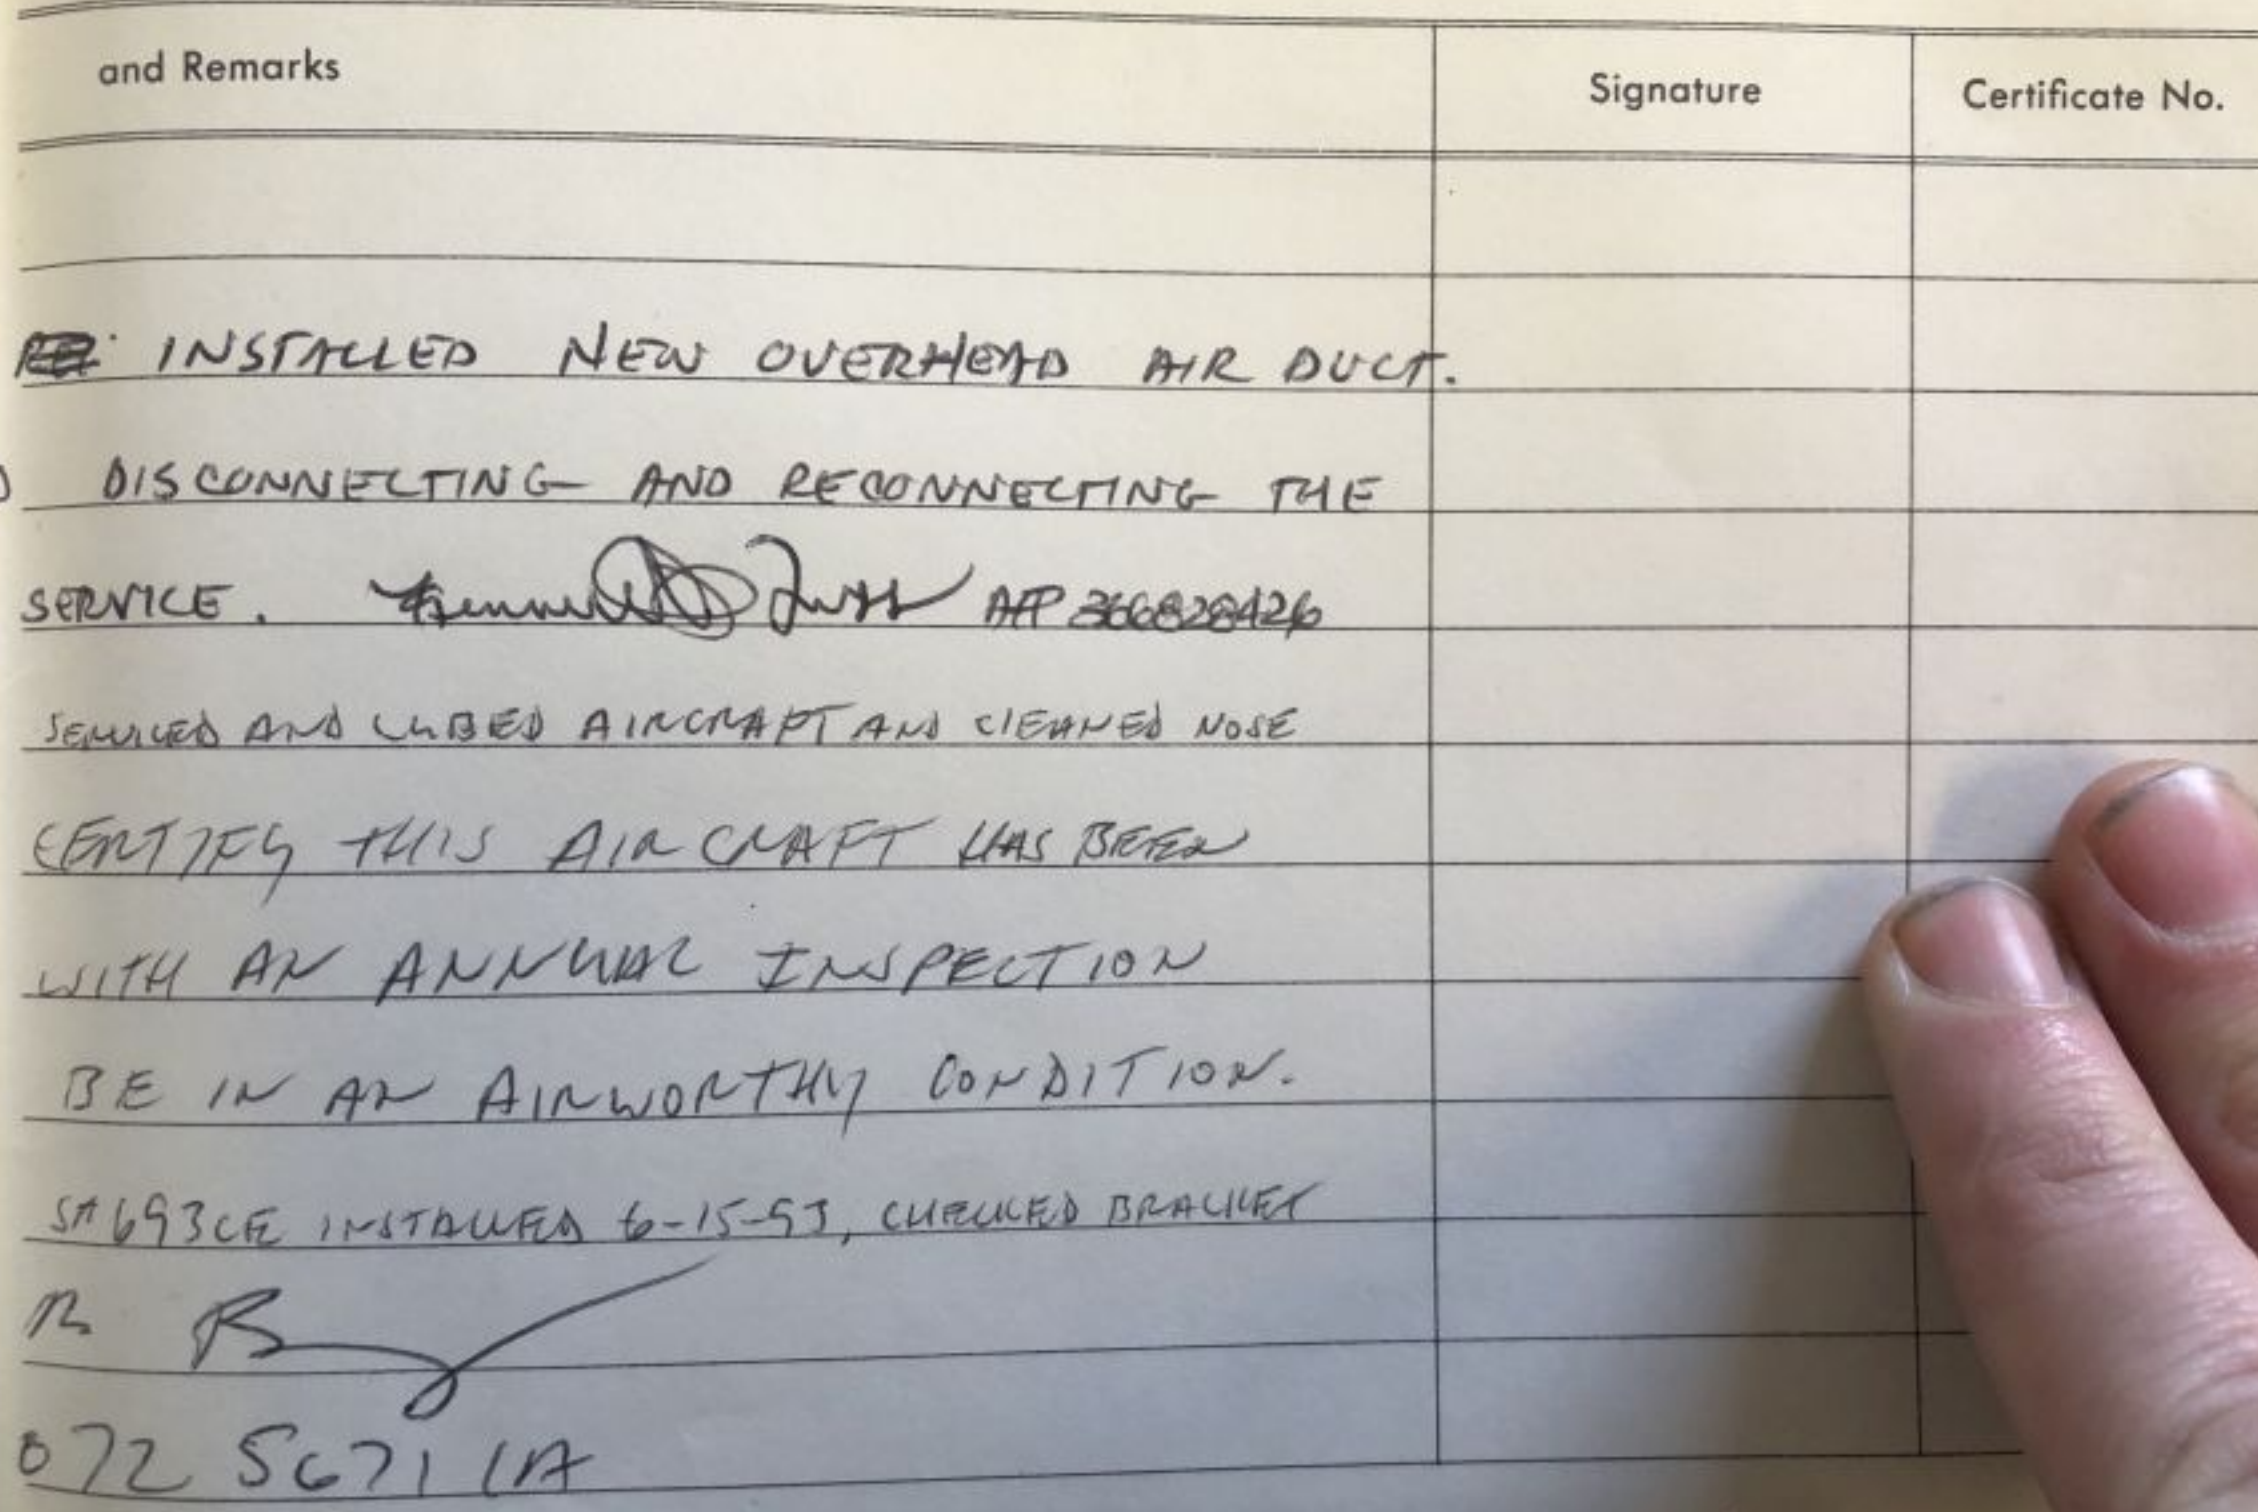 and Remarks
Signature
Certificate No.
INSTALLED NEW OVERHEAD AIR DUCT.
DISCONNECTING AND RECONNECTING THE
SERVICE. A+P 366828426
SERVICED AND LUBED AIRCRAFT AND CLEANED NOSE
CERTIFY THIS AIRCRAFT HAS BEEN
WITH AN ANNUAL INSPECTION
BE IN AN AIRWORTHY CONDITION.
SA693CE INSTALLED 6-15-93, CHECKED BRACKET
072 5671 IA